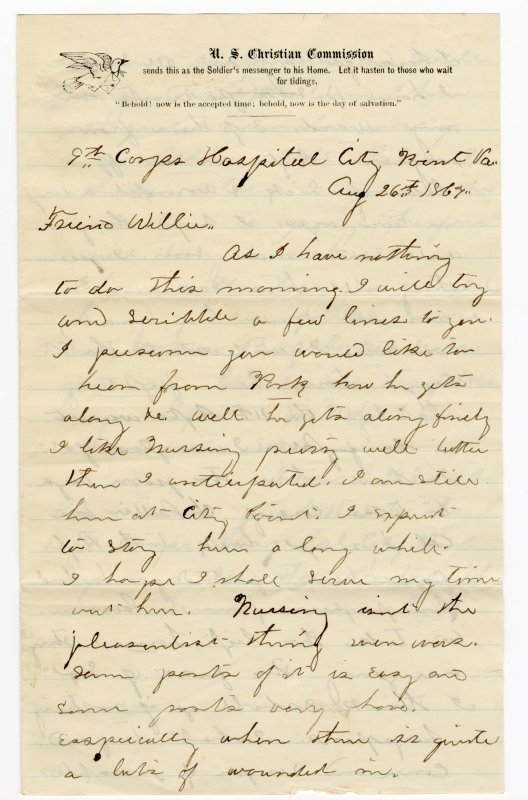 U. S. Christian Commission
sends this as the Soldier's messenger to his Home. Let it hasten to those who wait
for tidings.
"Behold! now is the accepted time; behold, now is the day of salvation."
9th Corps Hospital City Point Va.
Aug 26th 1864.
Friend Willie.
As I have nothing
to do this morning I will try
and scribble a few lines to you.
I presume you would like too
hear from Pork how he gets
along &c well he gets along finely
I like Nursing preety well better
then I anticipated. I am still
here at City Point. I expect
to stay here a long while
I hope I shall serve my time
out here. Nursing isnt the
pleasentist thing ever was.
Some parts of it is easy and
some parts very hard.
Easpecially when there is quite
a lots of wounded in.